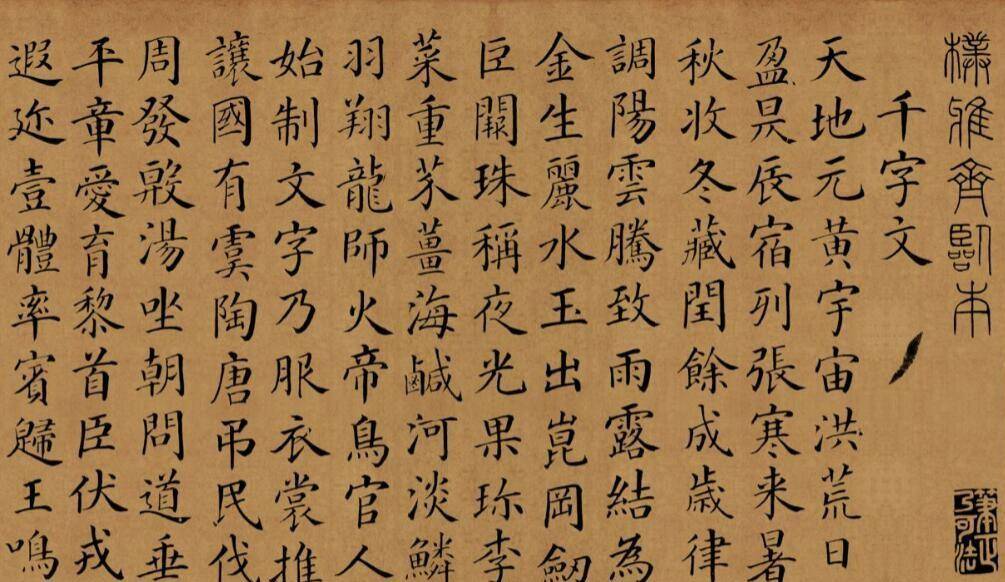 樸雅齊臨本
千字文
天地元黄宇宙洪荒日
盈昃辰宿列張寒来暑
秋收冬藏閏餘成歲律
調陽雲騰致雨露結為
金生麗水玉出崑岡劒
巨闕珠稱夜光果珎李
菜重芥薑海鹹河淡鱗
羽翔龍師火帝鳥官人
始制文字乃服衣裳推
讓國有虞陶唐吊民伐
周發殷湯坐朝問道垂
平章愛育黎首臣伏戎
遐迩壹體率賓歸王鳴